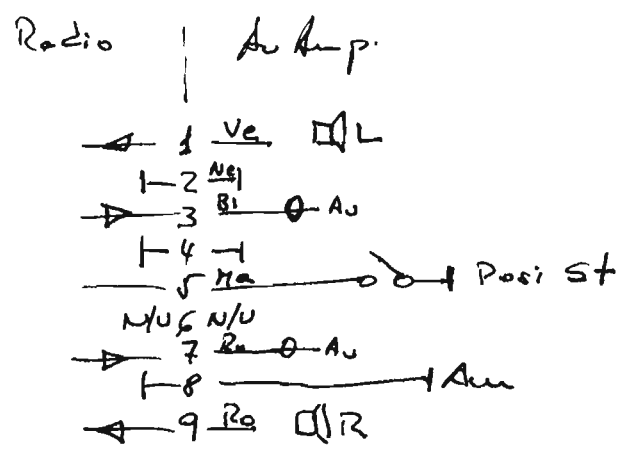 Radio Au Amp.
1 Ve L
2 Ne
3 Bi Au
4
5 Ma Posi St
N/U 6 N/U
7 Au
8
9 Ro R